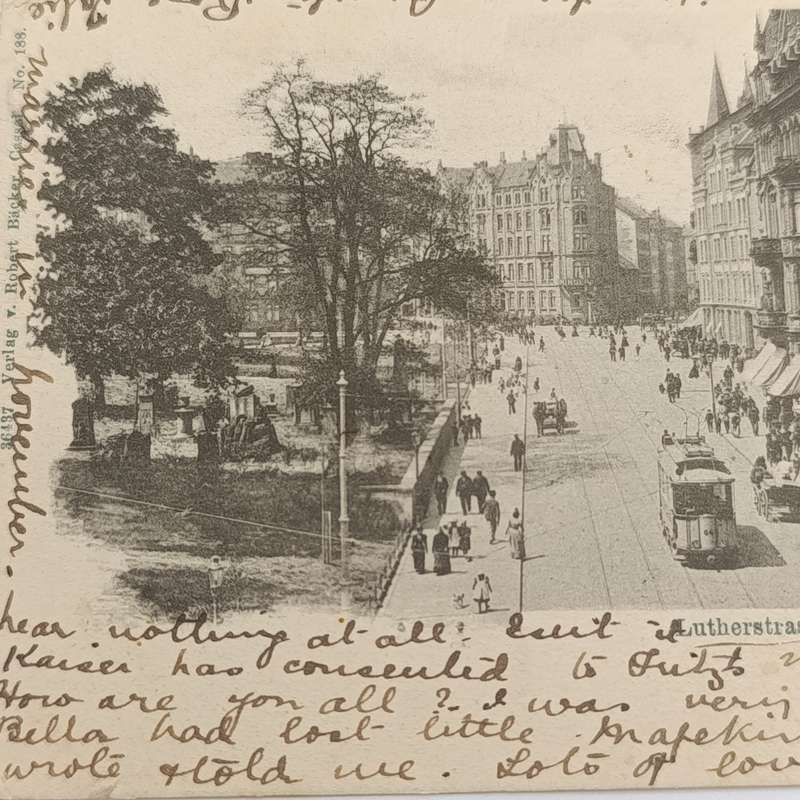 marries in November.
36437 Verlag v. Robert Bäcker, Cassel No. 188.
Lutherstras
hear nothing at all. Isn't it
Kaiser has consented to Fritzs
How are you all? I was very
Bella had lost little Mafekin
wrote & told me. Lots of lov